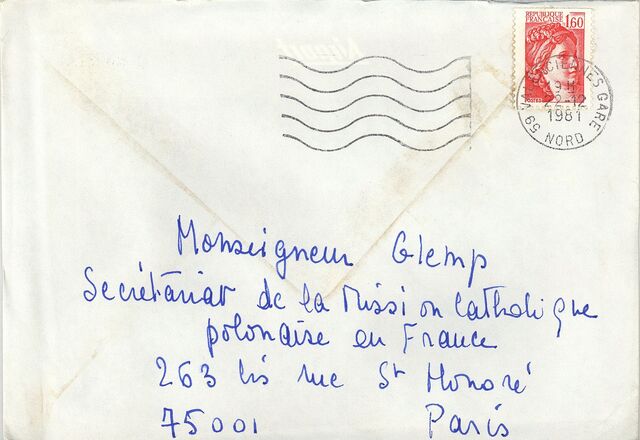 REPUBLIQUE FRANÇAISE 1,60
POSTES
VALENCIENNES GARE
22-12
1981
59 NORD
Monseigneur Glemp
Secrétariat de la Mission Catholique
polonaise en France
263 bis rue St Honoré
75001 Paris